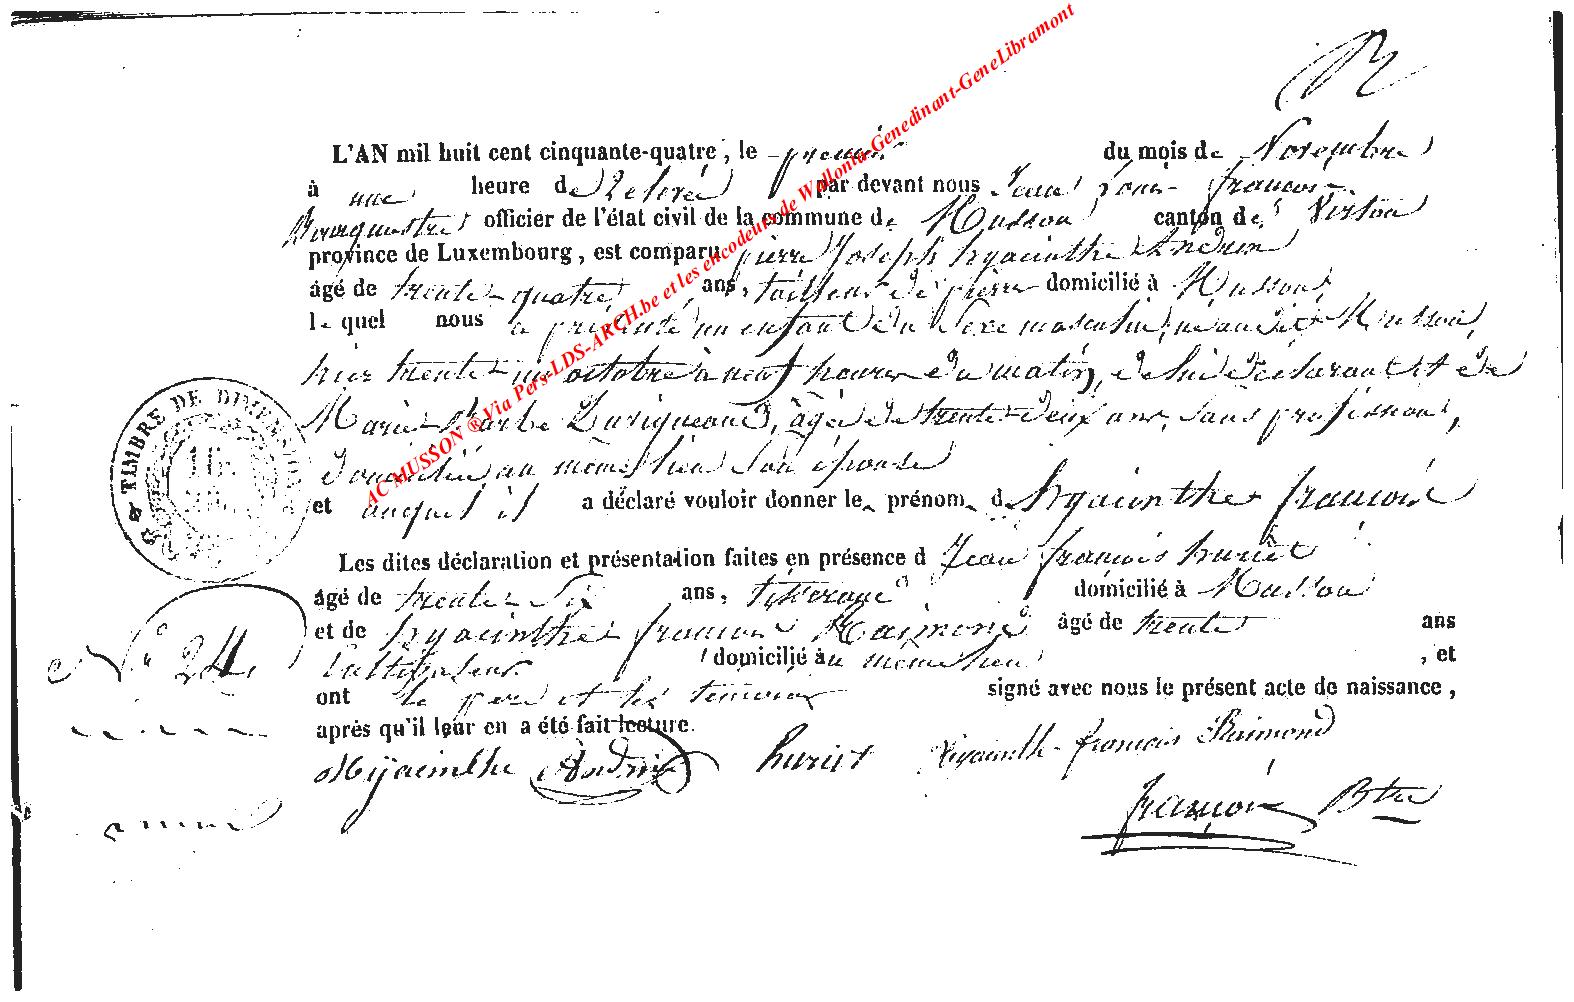 L'AN mil huit cent cinquante-quatre, le premier du mois de Novembre
à une heure de relevée par devant nous Jean Louis françois
Bourguestre officier de l'état civil de la commune de Musson canton de Virton
province de Luxembourg, est comparu pierre Joseph hyacinthe Andrin
âgé de trente-quatre ans, tailleur de pierre domicilié à Musson,
lequel nous a présenté un enfant du Sexe masculin, né audit Musson,
hier trente-un octobre à neuf heures du matin, de lui déclarant et de
Marie Barbe, âgée de trente-deux ans, sans profession,
domiciliée au même lieu son épouse
et auquel il a déclaré vouloir donner le prénom d hyacinthe françois
Les dites déclaration et présentation faites en présence d Jean françois huriet
âgé de trente-Six ans, tisserand domicilié à Musson
et de hyacinthe françois Raimond âgé de trente ans
Cultivateur domicilié au même lieu, et
ont le père et les témoins signé avec nous le présent acte de naissance,
après qu'il leur en a été fait lecture.
N° 24
Hyacinthe Andrin huriet hyacinthe françois Raimond
françois Btre
TIMBRE DE DIMENSION
AC MUSSON ® Via Pers-LDS-ARCH.be et les encodeurs de Wallonia-Genedinant-GeneLibramont